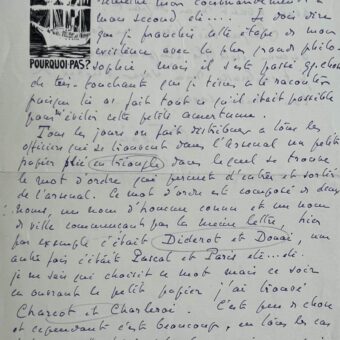 mon commandement à
mon second etc.... Je dois dire
que je franchis cette étape de mon
existence avec la plus grande philo-
POURQUOI-PAS?
sophie mais il s'est passé qq. chose
de très touchant que je tiens à te raconter
puisque tu as fait tout ce qu'il était possible
pour m'éviter cette petite amertume.
Tous les jours on fait distribuer à tous les
officiers qui se trouvent dans l'Arsenal un petit
papier plié en triangle dans lequel se trouve
le mot d'ordre qui permet d'entrer et sortir
de l'arsenal. Ce mot d'ordre est composé de deux
noms, un nom d'homme connu et un nom
de ville commençant par la même lettre, hier
par exemple c'était Diderot et Douai, une
autre fois c'était Pascal et Paris etc...
je ne sais qui choisit ce mot mais ce soir
en ouvrant le petit papier j'ai trouvé
Charcot et Charleroi. C'est peu de chose
et cependant c'est beaucoup, en tous les cas